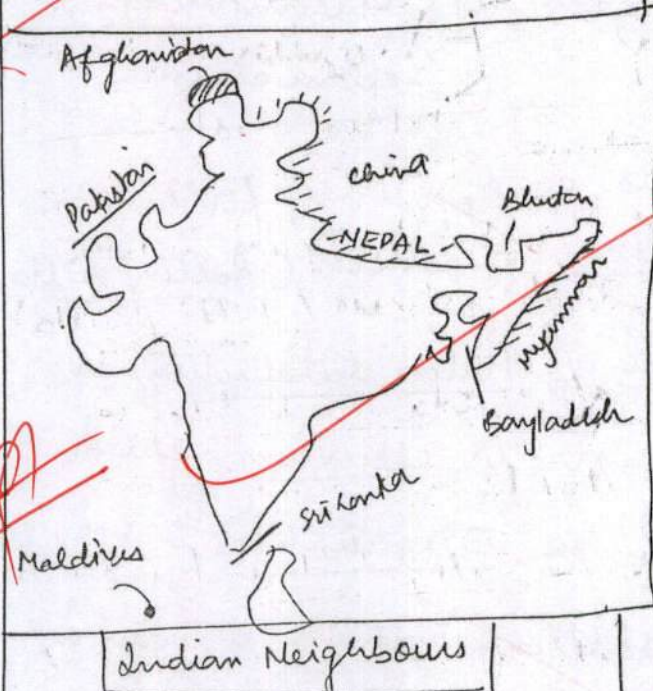 Afghanistan
Pakistan
China
Bhutan
NEPAL
Myanmar
Bangladesh
Sri Lanka
Maldives
Indian Neighbours